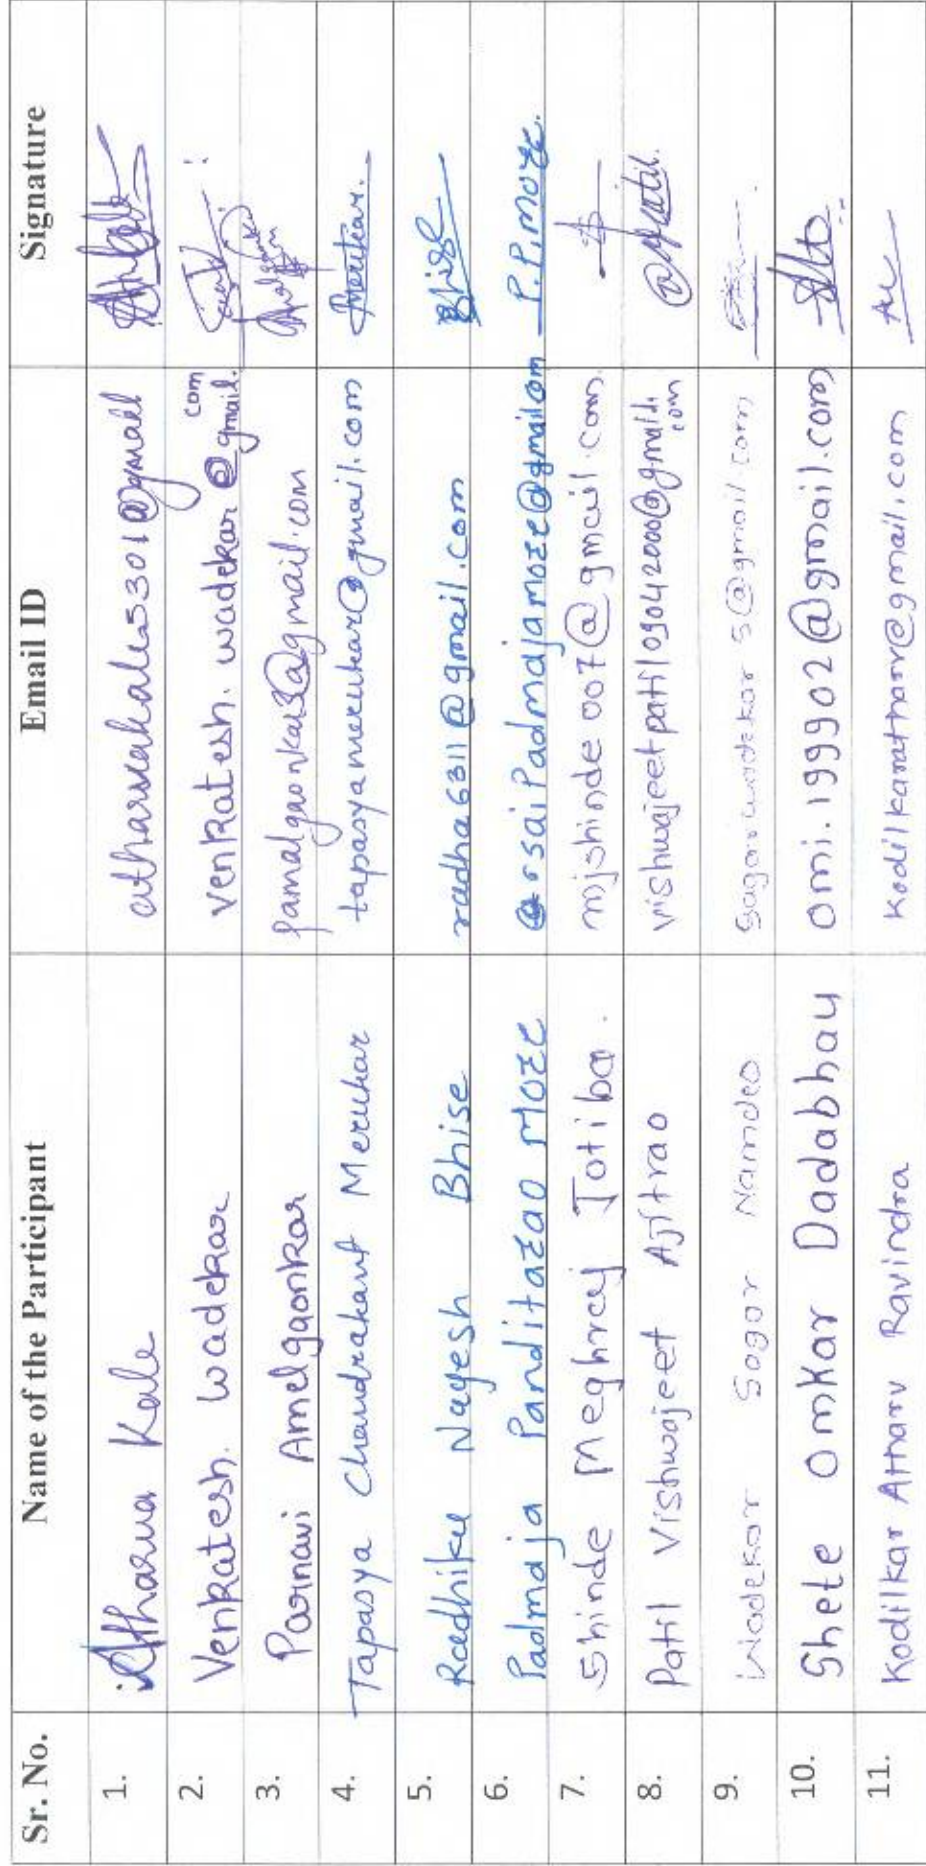 Sr. No. Name of the Participant Email ID Signature
1. Atharva Kale atharvakale5301@gmail
2. Venkatesh. wadekar venkatesh.wadekar@gmail.com
3. Parnavi Amelgaonkar
4. Tapasya Chandrakant Merukar tapasyamerukar@gmail.com Merukar.
5. Radhika Nagesh Bhise radha6311@gmail.com Bhise
6. Padmaja Panditarao More P.P.More.
7. Shinde Meghraj Jotiba. mjshinde007@gmail.com.
8. Patil Vishwajeet Ajitrao vishwajeetpatil09042000@gmail.com @Patil.
9. Wadekar Sagar Namdeo sagarwadekar5@gmail.com
10. Shete Omkar Dadabhau omi.199902@gmail.com
11. Kodilkar Atharv Ravindra Kodilkaratharv@gmail.com